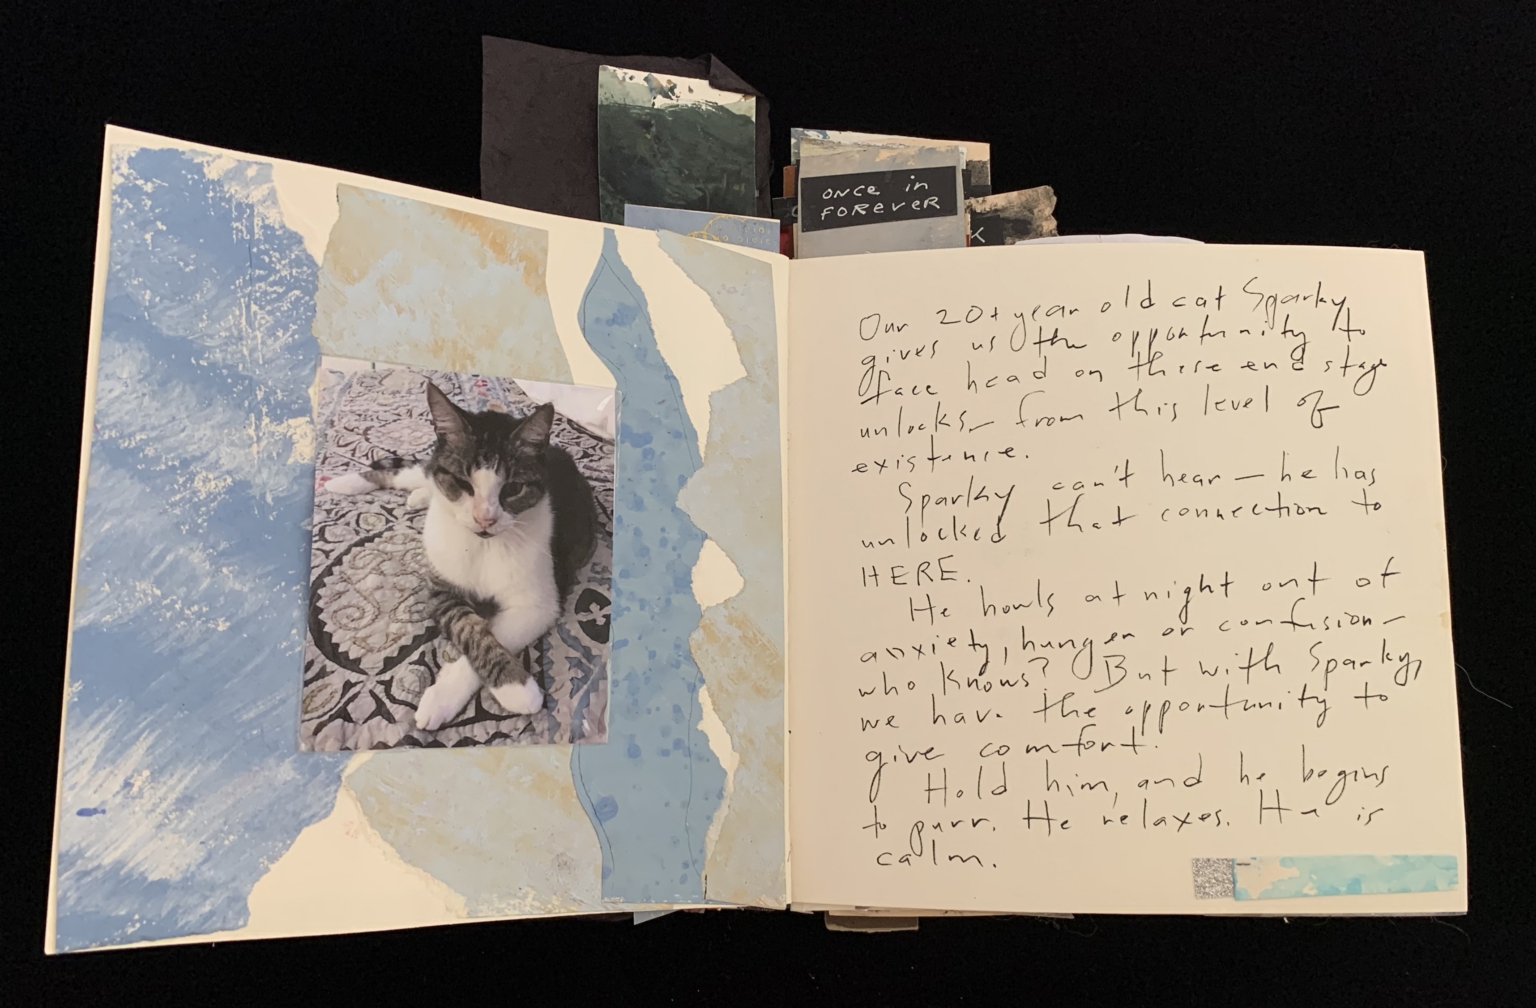 ONCE in
FOREVER
K
Our 20+ year old cat Sparky
gives us the opportunity to
face head on these end stage
unlocks from this level of
existence.
Sparky can't hear — he has
unlocked that connection to
HERE.
He howls at night out of
anxiety, hunger or confusion —
who knows? But with Sparky,
we have the opportunity to
give comfort.
Hold him, and he begins
to purr. He relaxes. He is
calm.